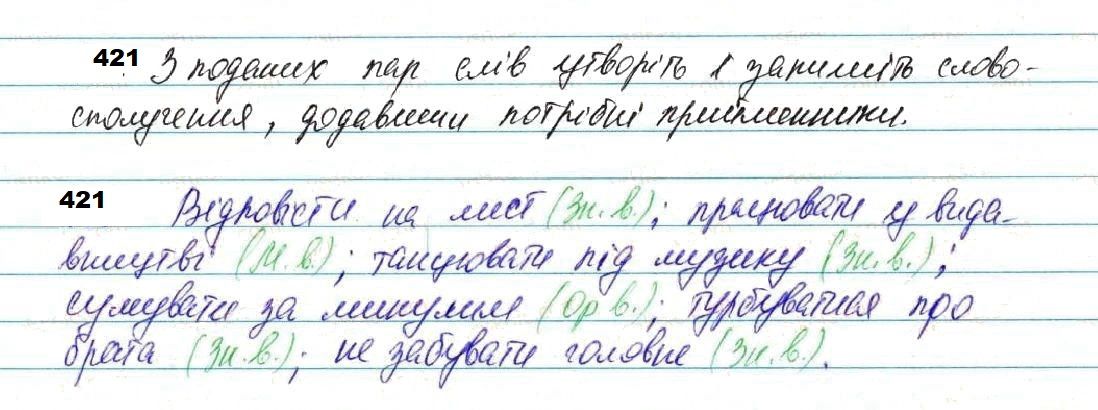 421 З поданих пар слів утворіть і запишіть слово-
сполучення, додавши потрібні прийменники.
421 Відповісти на лист (Зн. в.); працювати у вида-
вництві (М. в.); танцювати під музику (Зн. в.);
сумувати за минулим (Ор в.); турбуватися про
брата (Зн. в.); не забувати головне (Зн. в.).